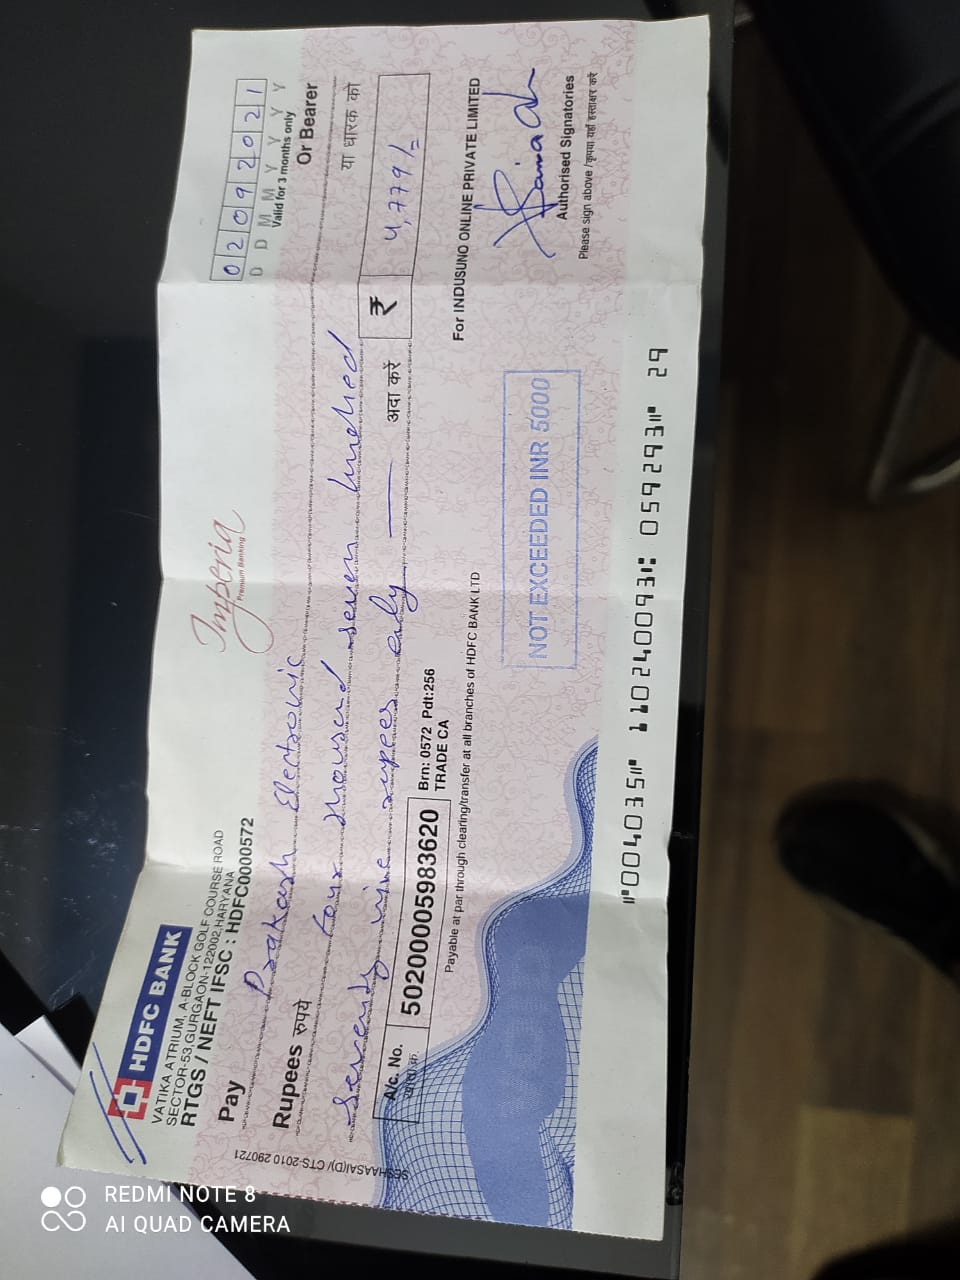 HDFC BANK
VATIKA ATRIUM, A-BLOCK GOLF COURSE ROAD
SECTOR-53,GURGAON-122002,HARYANA
RTGS / NEFT IFSC : HDFC0000572
Imperia
Premium Banking
02092021
D D M M Y Y Y Y
Valid for 3 months only
Pay Prakash Electronic Or Bearer
या धारक को
Rupees रुपये Four thousand seven hundred
seventy nine rupees only अदा करें
₹ 4,779/=
A/c. No. 50200005983620
Brn: 0572 Pdt:256
TRADE CA
For INDUSUNO ONLINE PRIVATE LIMITED
Payable at par through clearing/transfer at all branches of HDFC BANK LTD
NOT EXCEEDED INR 5000
Authorised Signatories
Please sign above /कृपया यहाँ हस्ताक्षर करें
SESHAASAI(D)/ CTS-2010 290721
⑈004035⑈ 110240093⑆ 059293⑈ 29
REDMI NOTE 8
AI QUAD CAMERA